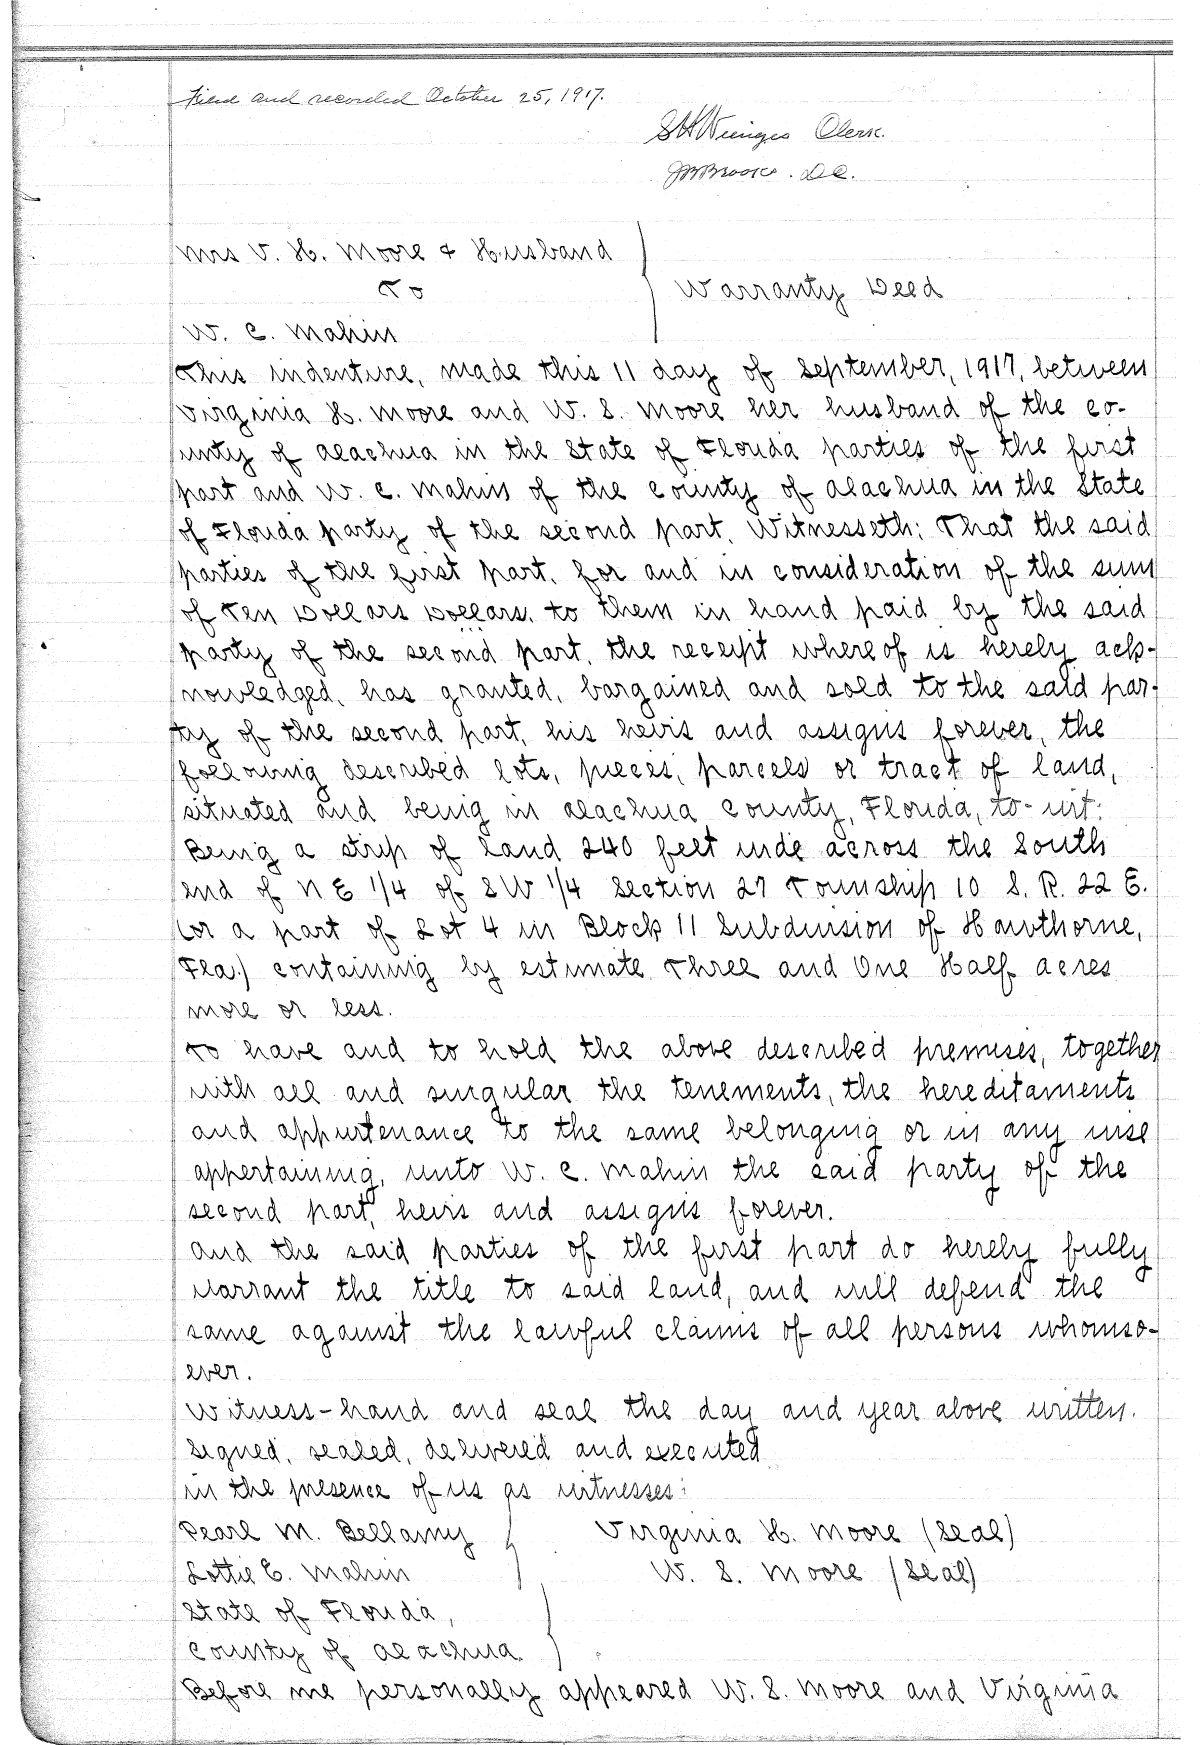 Filed and recorded October 25, 1917.
S H Wienges Clerk.
Brooks. D.C.
Mrs V. H. Moore & Husband
To
Warranty Deed
W. C. Mahin
This indenture, made this 11 day of September, 1917, between
Virginia H. Moore and W. S. Moore her husband of the co-
unty of Alachua in the State of Florida parties of the first
part and W. C. Mahin of the county of Alachua in the State
of Florida party of the second part, Witnesseth: That the said
parties of the first part, for and in consideration of the sum
of Ten Dollars Dollars, to them in hand paid by the said
party of the second part, the receipt whereof is hereby ack-
nowledged, has granted, bargained and sold to the said par-
ty of the second part, his heirs and assigns forever, the
following described lots, pieces, parcels or tract of land,
situated and being in Alachua County, Florida, to-wit:
Being a strip of land 240 feet wide across the South
end of N E 1/4 of S W 1/4 Section 27 Township 10 S. R. 22 E.
(or a part of Lot 4 in Block 11 Subdivision of Hawthorne,
Fla.) containing by estimate Three and One Half acres
more or less.
To have and to hold the above described premises, together
with all and singular the tenements, the hereditaments
and appurtenance to the same belonging or in any wise
appertaining, unto W. C. Mahin the said party of the
second part, heirs and assigns forever.
And the said parties of the first part do hereby fully
warrant the title to said land, and will defend the
same against the lawful claims of all persons whomso-
ever.
Witness-hand and seal the day and year above written.
Signed, sealed, delivered and executed
in the presence of us as witnesses:
Pearl M. Bellamy Virginia H. Moore (Seal)
Lottie E. Mahin W. S. Moore (Seal)
State of Florida,
County of Alachua
Before me personally appeared W. S. Moore and Virginia